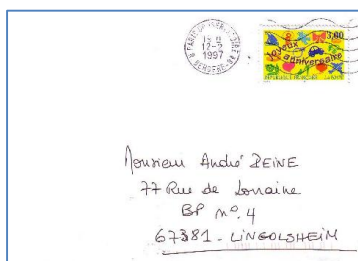 15 H
12-2
1997
3,00
joyeux
anniversaire
RÉPUBLIQUE FRANÇAISE LA POSTE
Monsieur André REINE
77 Rue de Lorraine
BP n°. 4
67381 - LINGOLSHEIM